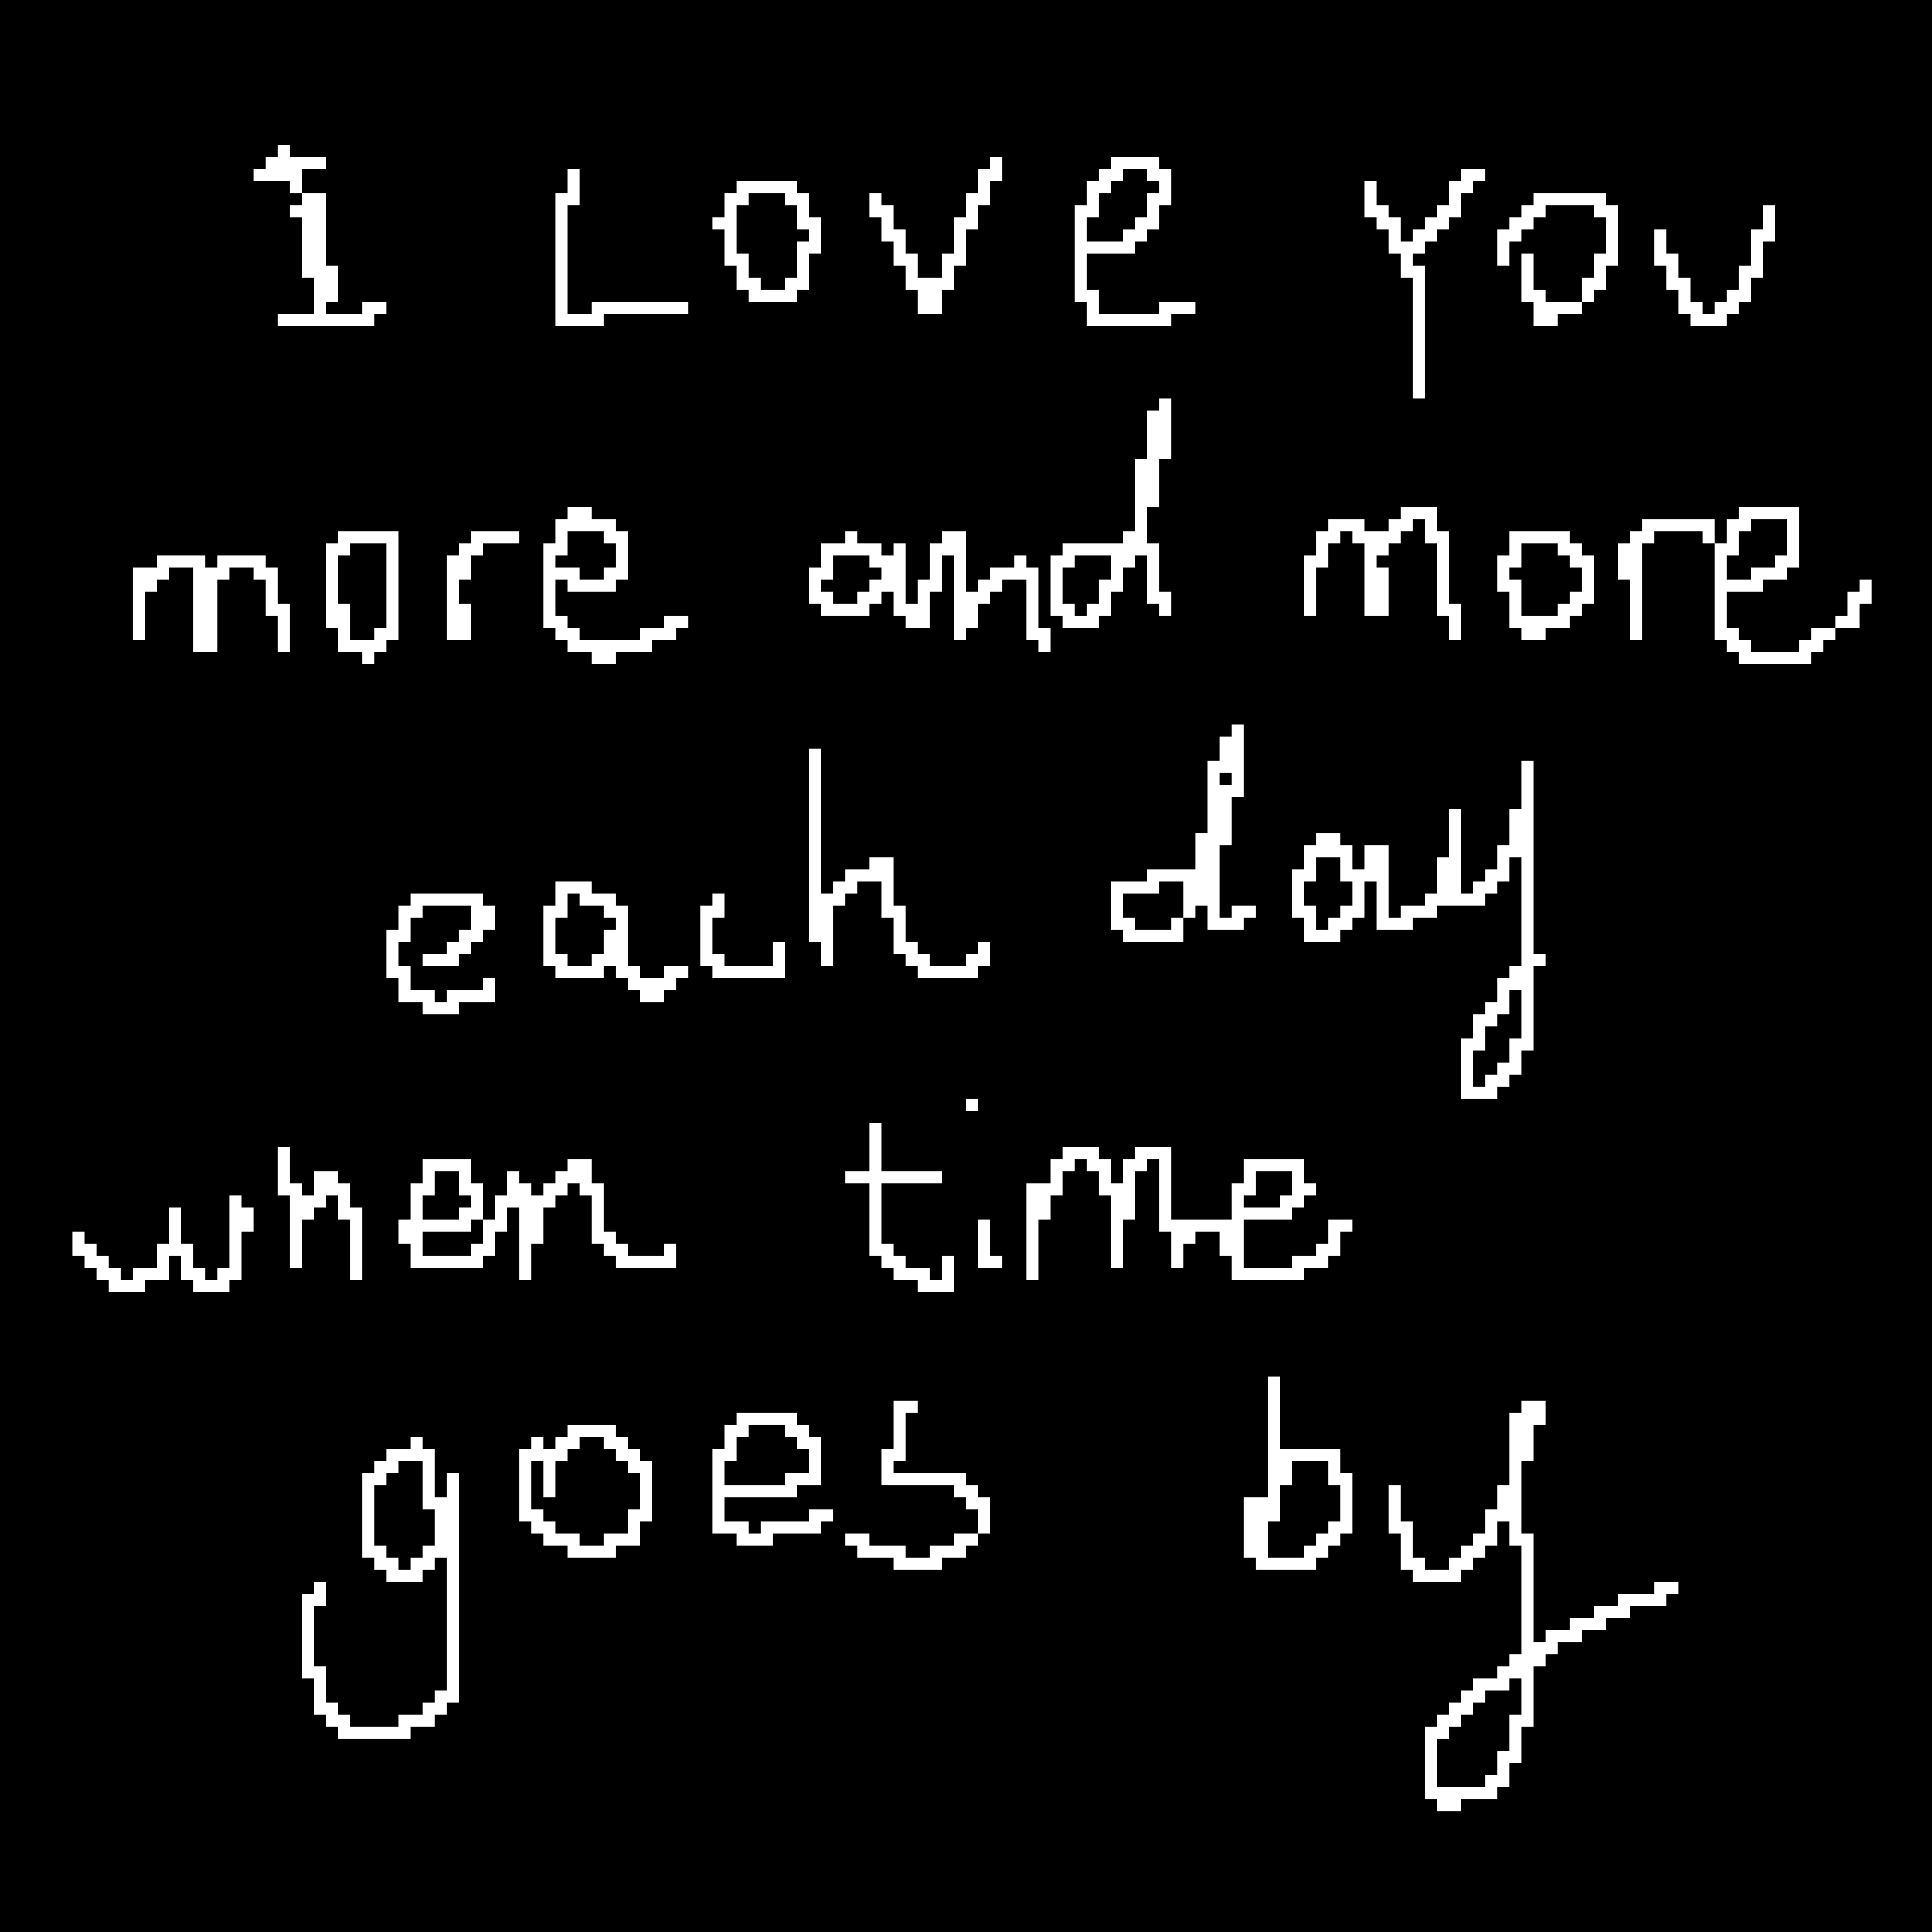 1 Love you
more and more
each day
when time
goes by